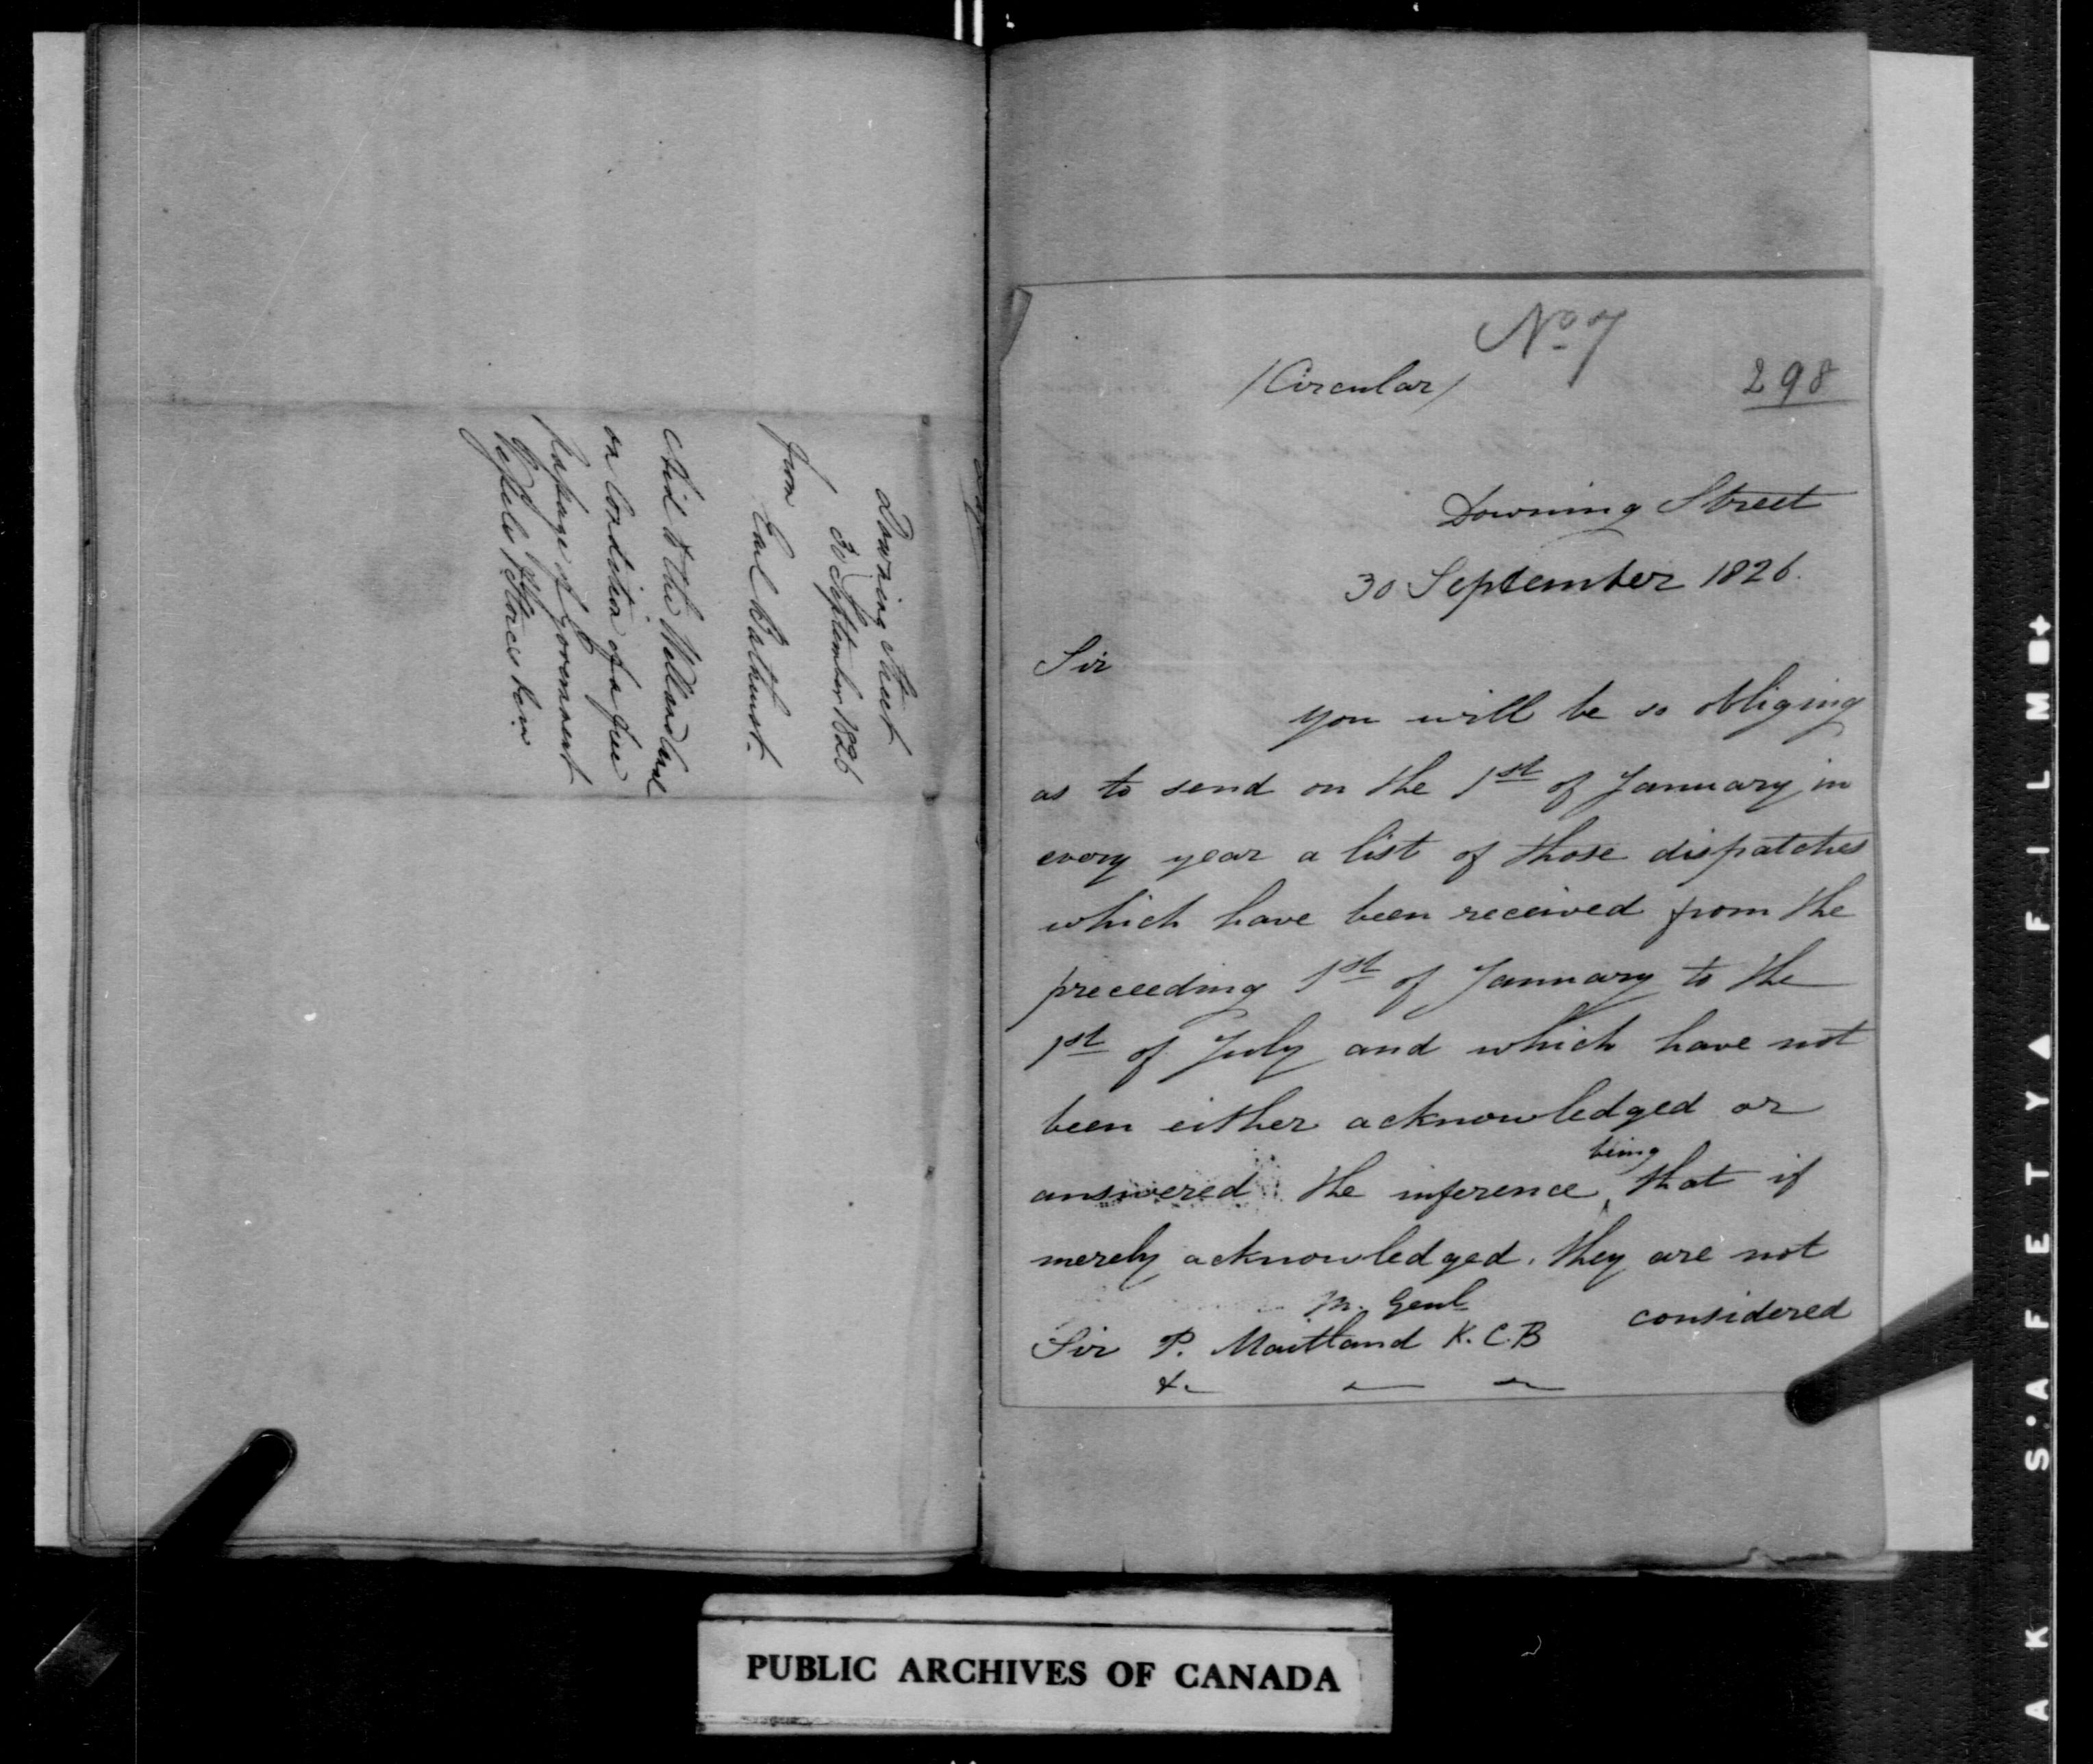 Downing Street
30 September 1826
from Earl Bathurst.
Aid to the Welland Canl
on Condition of a free
passage of Government
Vessels & Stores &c in
No 7
/Circular/
298
Downing Street
30 September 1826.
Sir
You will be so obliging
as to send on the 1st of January in
every year a list of those dispatches
which have been received from the
preceeding 1st of January to the
1st of July and which have not
been either acknowledged or
being
answered the inference that if
merely acknowledged, they are not
considered
M. Genl
Sir P. Maitland K.C.B
&c
PUBLIC ARCHIVES OF CANADA
A K S'A F E T Y ▲ F I L M